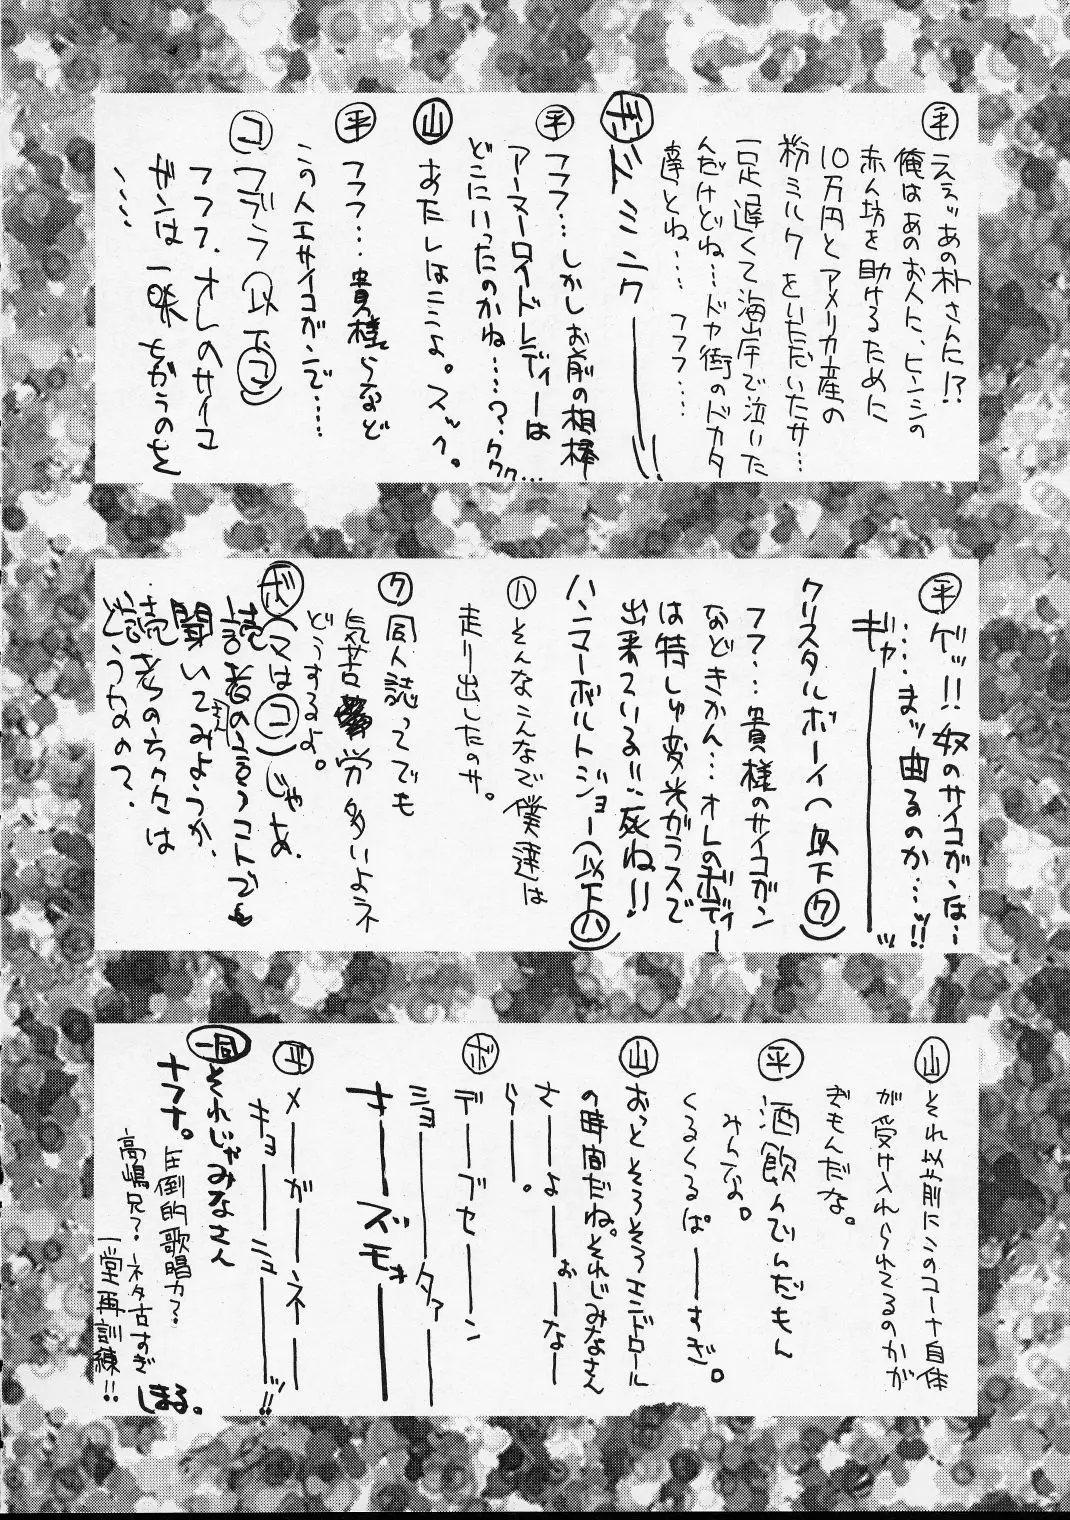 平 ええッあの朴さんに!?
俺はあのお人に、ヒンシの
赤ん坊を助けるために
10万円とアメリカ産の
粉ミルクをいただいたサ…
一足遅くて海岸で泣いた
んだけどね…ドヤ街のドカタ
達とね… フフフ…
ボ ドミニクーーー!!
平 フフフ…しかしお前の相棒
アーマーロイドレディーは
どこにいったのかね…?ククク…
山 あたしはここよ。ズペ。
平 フフフ…貴様らなど
この人工サイコガンで……
コ コブラ(以下コ)
フフフ、オレのサイコ
ガンは一味ちがうのを
、、、、
平 ゲッ!!奴のサイコガンは…
……まッ曲るのか…ッ!!
ギャーーーッ
クリスタルボーイ(以下ク)
フフ…貴様のサイコガン
などきかん…オレのボディー
は特しゅ変光ガラスで
出来ている!!死ね!!
ハンマーボルトジョー(以下ハ)
ハ そんなこんなで僕達は
走り出したのサ。
ク 同人誌ってでも
気苦労多いよネ
どうするよ。
ボ (マはコ)じゃあ、
読者さんの言うコトでも
聞いてみようか、
読者の方々は
どうなの?
山 それ以前にこのコーナ自体
が受け入れられてるのかが
ぎもんだな。
平 酒飲んでんだもん
みんな。
くるくるぱーーすぎ。
山 おっとそろそろエンドロール
の時間だね。それじみなさん
さーよーおーなー
らー。
ボ デーブセーン
ショーータァー
オーーズモォーー
平 メーガーネー
キョーーニューーッ!!
一同 それじゃみなさん
ナフナ。
圧倒的歌唱力?
高嶋兄?ネタ古すぎ
一堂再訓練!!
しまる。